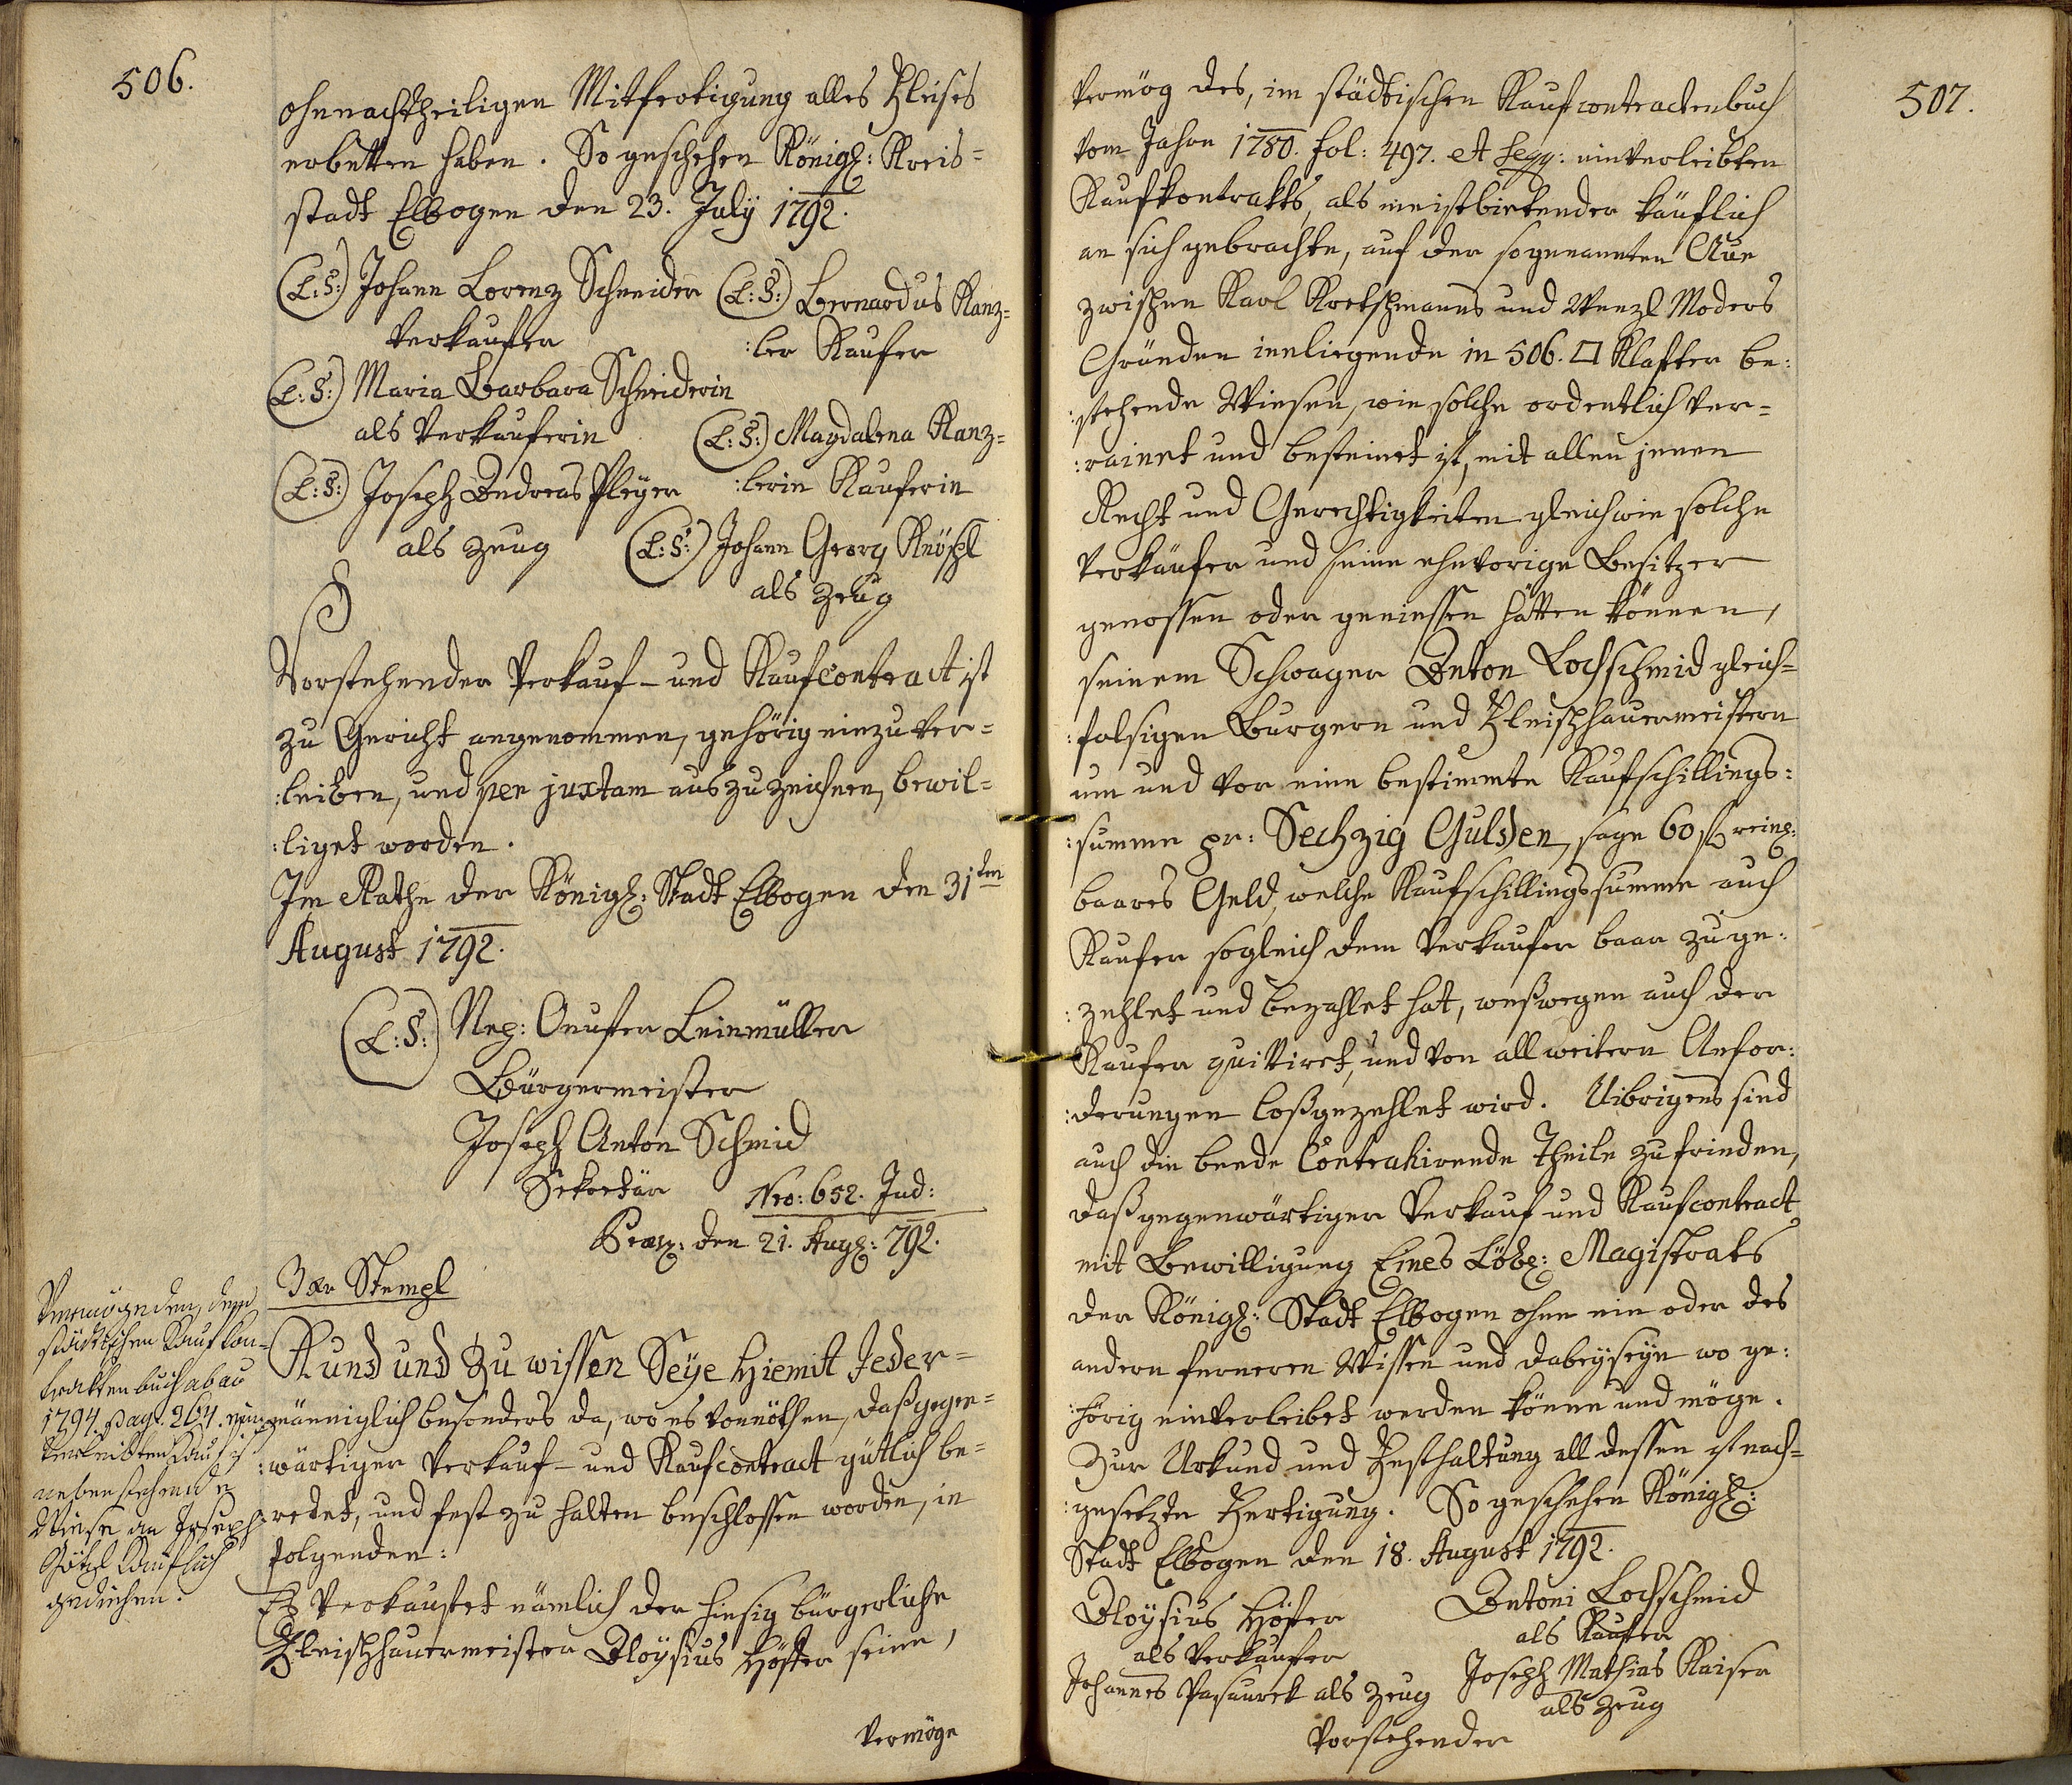 506.
ohnnachtheiligen Mitfertigung alles Fleises
erbetten haben. So geschehen Königl: Kreis=
stadt Elbogen den 23. July 1792.
(L:S:) Johann Lorenz Schneider (L:S:) Bernardus Kanz=
Verkaufer :ler Kaufer
(L:S:) Maria Barbara Schneiderin
als Verkauferin (L:S:) Magdalena Kanz=
(L:S:) Joseph Andreas Pleyer :lerin Kauferin
als Zeug (L:S:) Johann Georg Knöschl
als Zeug
Vorstehender Verkauf- und Kaufcontract ist
zu Gericht angenommen, gehörig einzuver=
:leiben, und per juxtam auszuzeichnen, bewil=
:liget worden.
Im Rathe der Königl: Stadt Elbogen den 31ten
August 1792.
(L:S:) Nep: Onufer Leinmüller
Bürgermeister
Joseph Anton Schmid
Sekretär Nro: 652. Jud:
Præs: den 21. Augl: 792.
3 xr Stempl
Kund und zu wissen Seye hiemit Jeder=
männiglich besonders da, wo es vonnöthen, daß gegen=
:wärtiger Verkauf- und Kaufcontract gütlich be=
redet, und fest zu halten beschlossen worden, in
folgenden:
Es Verkaufet nämlich der hiesig bürgerliche
Fleischhauermeister Aloysius Höfer seine,
Vermöge
Vermög den, dem
städtischen Kaufkon=
traktenbuch ab ao
1794. pag. 264. ein
verleibten Kauf ist
nebenstehende
Wiese an Joseph
Götzl Käuflich
gediehen.
507.
Vermög des, im städtischen Kaufcontractenbuch
vom Jahre 1780. fol: 497. et seqq: einverleibten
Kaufkontrakts, als meistbietender käuflich
an sich gebrachte, auf der sogenannten Aue
zwischen Karl Kretschmanns und Wenzl Moders
Gründen innliegende in 506. □ Klafter be:
:stehende Wiesen, wie solche ordentlich ver=
:rainet und besteinet ist, mit allen jenen
Recht und Gerechtigkeiten gleichwie solche
Verkäufer und seine ehevorige Besitzer
genossen oder geniessen hätten können,
seinem Schwager Anton Lochschmid gleich=
:falsigen Burgern und Fleischhauermeistern
um und vor eine bestimmte Kaufschillings:
:summe pr: Sechzig Gulden, sage 60 fl reinl:
baares Geld, welche Kaufschillingssumme auch
Kaufer sogleich dem Verkaufer baar zuge:
:zehlet und bezahlet hat, weßwegen auch der
Kaufer quittiret, und von all weitern Anfor:
:derungen loßgezehlet wird. Uibrigens sind
auch die beede Contrahirende Theile zufrieden,
daß gegenwärtiger Verkauf und Kaufcontract
mit Bewilligung Eines Löbl: Magistrats
der Königl: Stadt Elbogen ohne ein oder des
andern ferneren Wissen und dabeyseyn wo ge:
:hörig einverleibet werden könne und möge.
Zur Urkund und Festhaltung all dessen ist nach=
:gesetzte Fertigung. So geschehen Königl:
Stadt Elbogen den 18. August 1792.
Aloysius Höfer Antoni Lochschmid
als Verkaufer als Kaufer
Johannes Pasaurek als Zeug Joseph Mathias Kaiser
als Zeug
Vorstehender